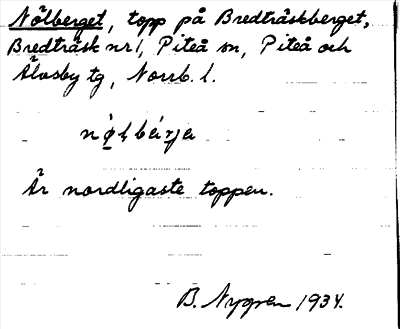 Nölberget, topp på Bredträskberget,
Bredträsk nr 1, Piteå sn, Piteå och
Älvsby tg, Norrb. l.
Är nordligaste toppen.
B. Nygren 1934.